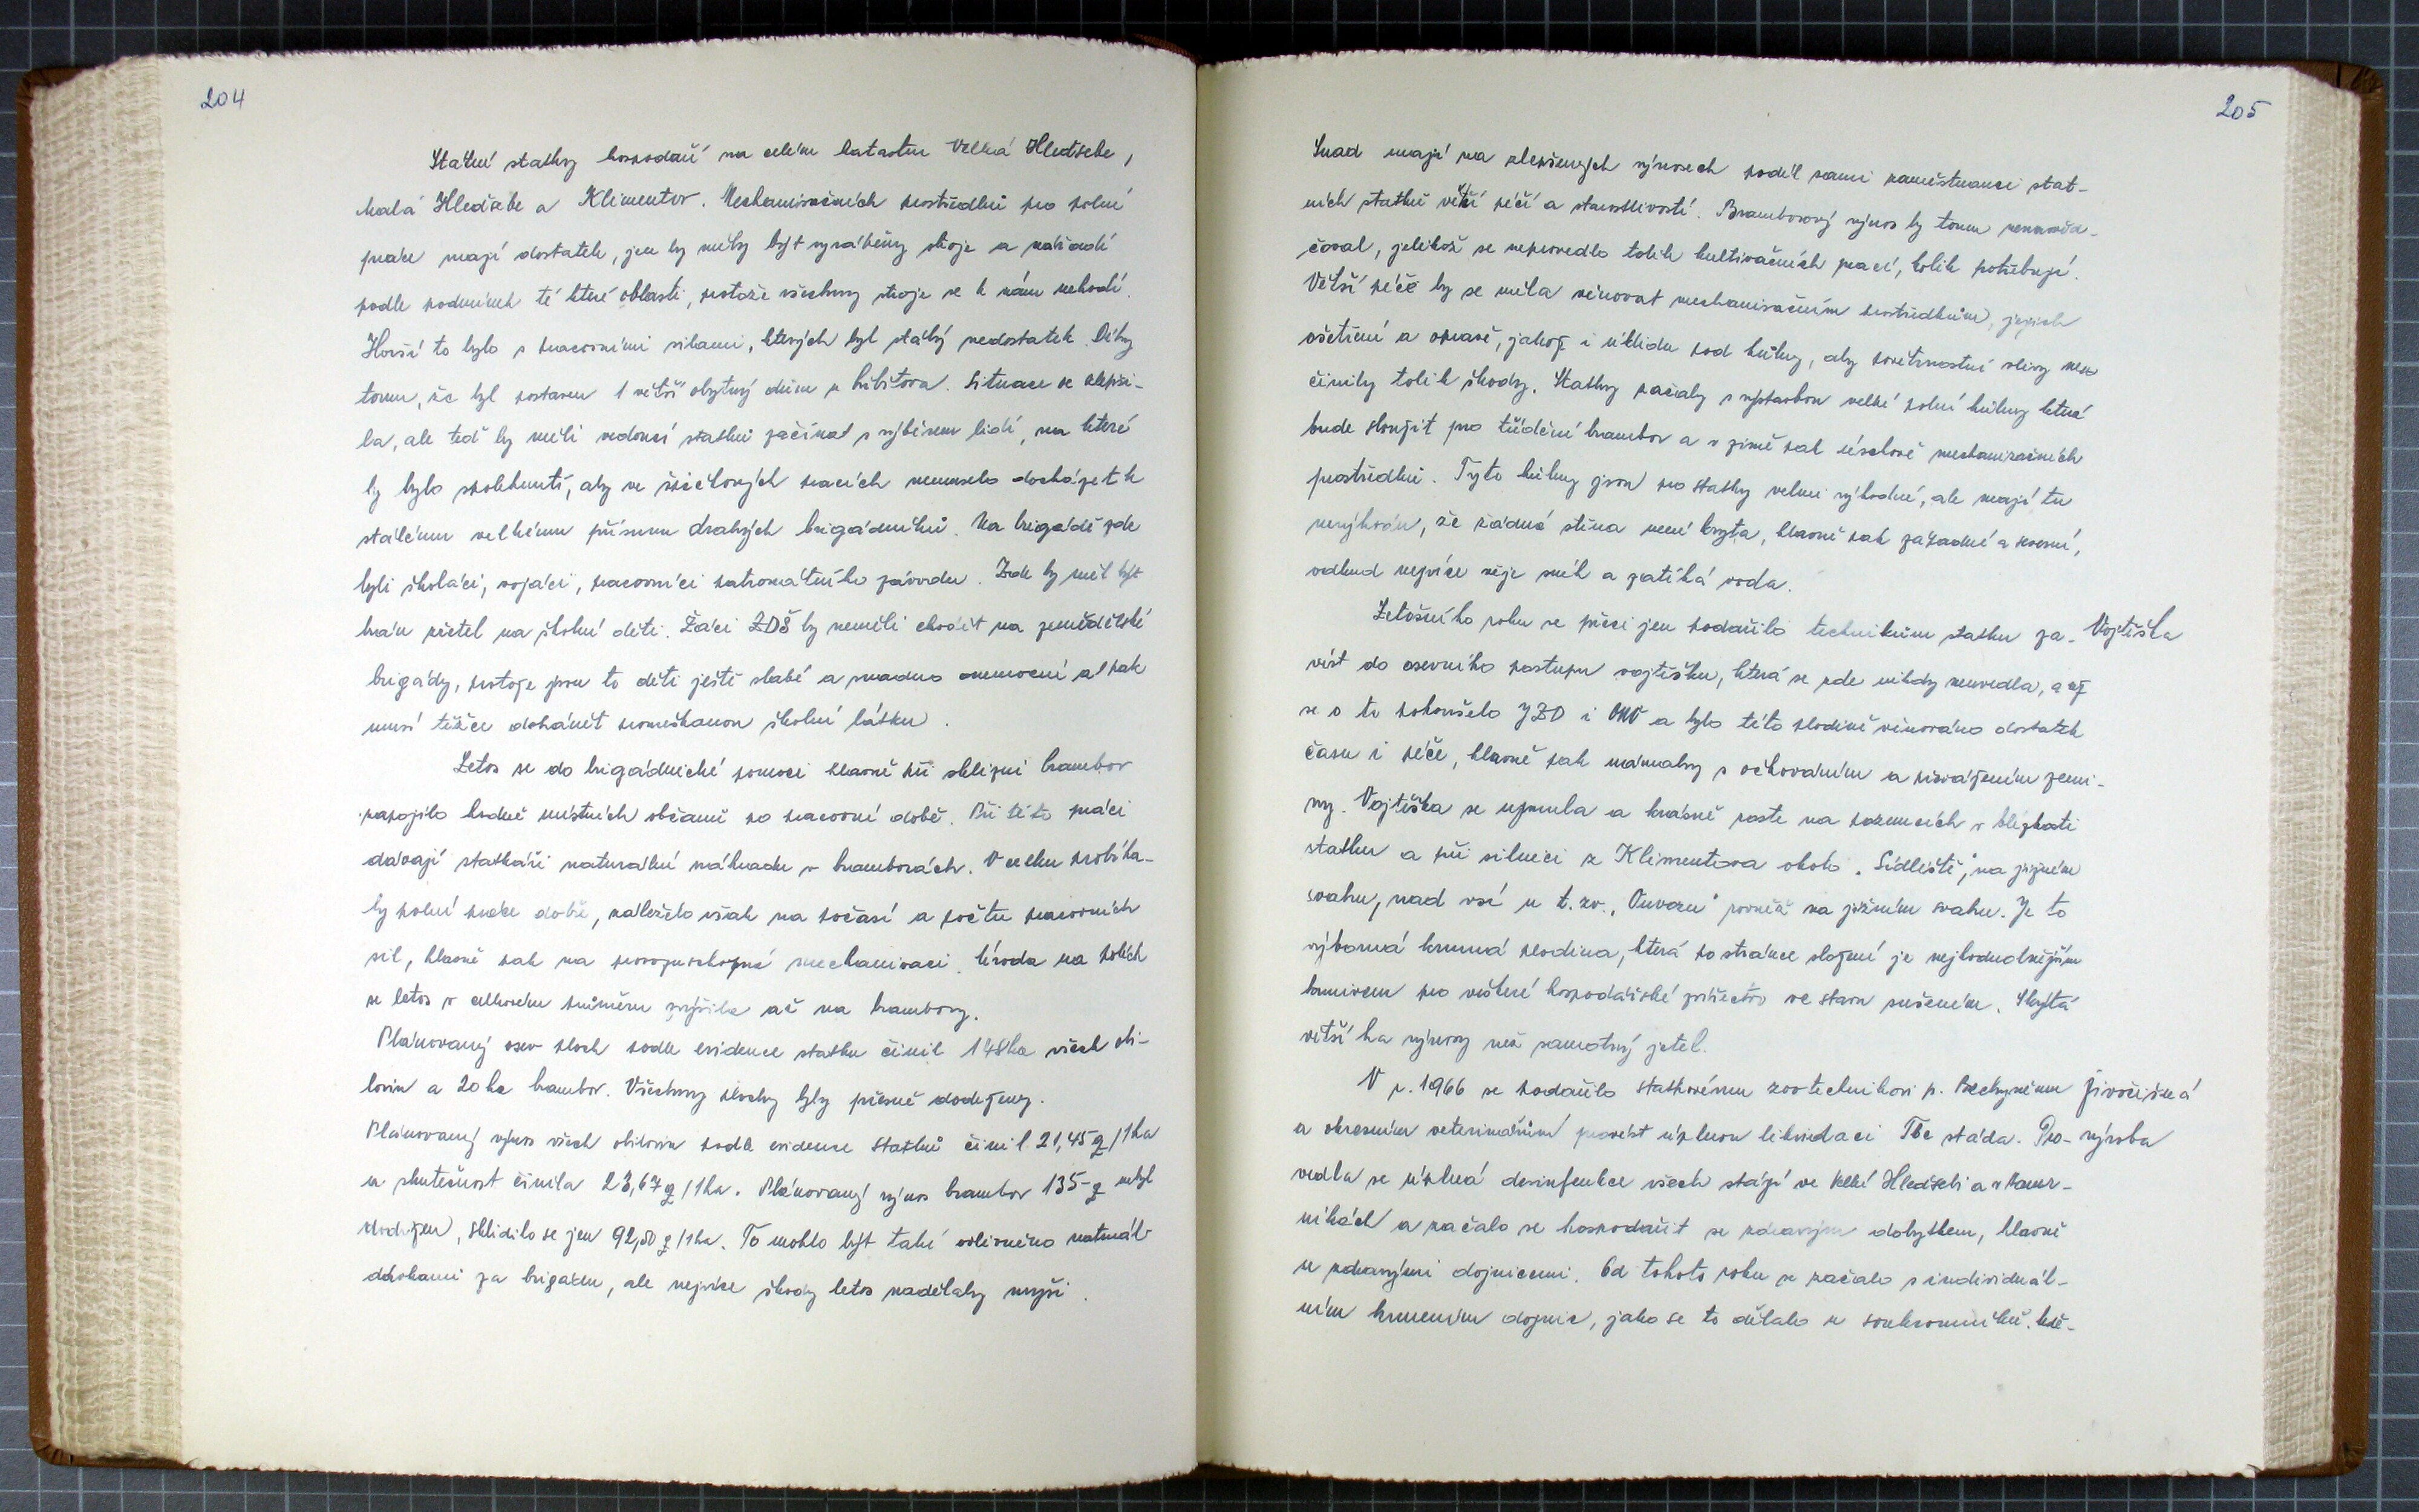 204
Státní statky hospodaří na celém katastru Velká Hleďsebe,
Malá Hleďsebe a Klimentov. Mechanisačních prostředků pro polní
práce mají dostatek, jen by měly být vyráběny stroje a nářadí
podle podmínek té které oblasti, protože všechny stroje se k nám nehodí.
Horší to bylo s pracovními silami, kterých byl stálý nedostatek. Díky
tomu, že byl postaven 1 větší obytný dům u hřbitova. Situace se zlepši-
la, ale teď by měli vedoucí statků začínat s výběrem lidí, na které
by bylo spolehnutí, aby ve špičkových pracích nemuselo docházet k
stálému velkému přísunu drahých brigádníků. Na brigádě zde
byli školáci, vojáci, pracovníci patronátního závodu. Zde by měl být
brán zřetel na školní děti. Žáci ZDŠ by neměli chodit na zemědělské
brigády, protože jsou to děti ještě slabé a snadno onemocní a pak
musí těžce dohánět promeškanou školní látku.
Letos se do brigádnické pomoci hlavně při sklizni brambor
zapojilo hodně místních občanů po pracovní době. Při této práci
dávají statkáři naturální náhradu v bramborách. V celku probíha-
ly polní práce dobře, záleželo však na počasí a počtu pracovních
sil, hlavně pak na provozuschopné mechanisaci. Úroda na polích
se letos v celkovém průměru zvýšila až na brambory.
Plánovaný osev ploch podle evidence statku činil 148 ha všech obi-
lovin a 20 ha brambor. Všechny plochy byly přesně dodrženy.
Plánovaný výnos všech obilovin podle evidence statků činil 21,45 q/1ha
a skutečnost činila 23,67 q/1ha. Plánovaný výnos brambor 135 q nebyl
dodržen, sklidilo se jen 92,50 q/1ha. To mohlo být také ovlivněno naturál.
dávkami za brigádu, ale nejvíce škody letos nadělaly myši.
205
Snad mají na zlepšených výnosech podíl sami zaměstnanci stat-
ních statků větší péčí a starostlivostí. Bramborový výnos by tomu nenasvěd-
čoval, jelikož se neprovedlo tolik kultivačních prací, kolik potřebují.
Větší péče by se měla věnovat mechanisačním prostředkům, jejich
ošetření a opravě, jakož i úklidu pod kůlny, aby povětrnostní vlivy ne
činily tolik škody. Statky začaly s výstavbou velké polní kůlny která
bude sloužit pro třídění brambor a v zimě pak úschově mechanizačních
prostředků. Tyto kůlny jsou pro statky velmi výhodné, ale mají tu
nevýhodu, že žádná stěna není kryta, hlavně pak západní a severní,
odkud nejvíce věje sníh a zatéká voda.
Letošního roku se přeci jen podařilo technikům statku za-
Vojtěška
vést do osevního postupu vojtěšku, která se zde nikdy neuvedla, ač
se o to pokoušelo JZD i ONV a bylo této plodině věnováno dostatek
času i péče, hlavně pak námahy s očkováním a převážením zemi-
ny. Vojtěška se ujmula a krásně roste na pozemcích v blízkosti
statku a při silnici z Klimentova okolo „Sídliště“, na jižním
svahu, nad vsí u t. zv. „Ovozu“ rovněž na jižním svahu. Je to
výborná krmná plodina, která po stránce složení je nejhodnotnějším
krmivem pro veškeré hospodářské zvířectvo ve stavu sušeném. Skýtá
větší ha výnosy než samotný jetel.
V r. 1966 se podařilo statkovému zootechnikovi p. Bechynému
Živočišná
a okresním veterinářům provést úplnou likvidaci Tbc stáda. Pro-
výroba
vedla se úplná desinfekce všech stájí ve Velké Hleďsebi a v Kamr-
níkách a začalo se hospodařit se zdravým dobytkem, hlavně
se zdravými dojnicemi. Od tohoto roku se začalo s individuál-
ním krmením dojnic, jako se to dělalo u soukromníků.